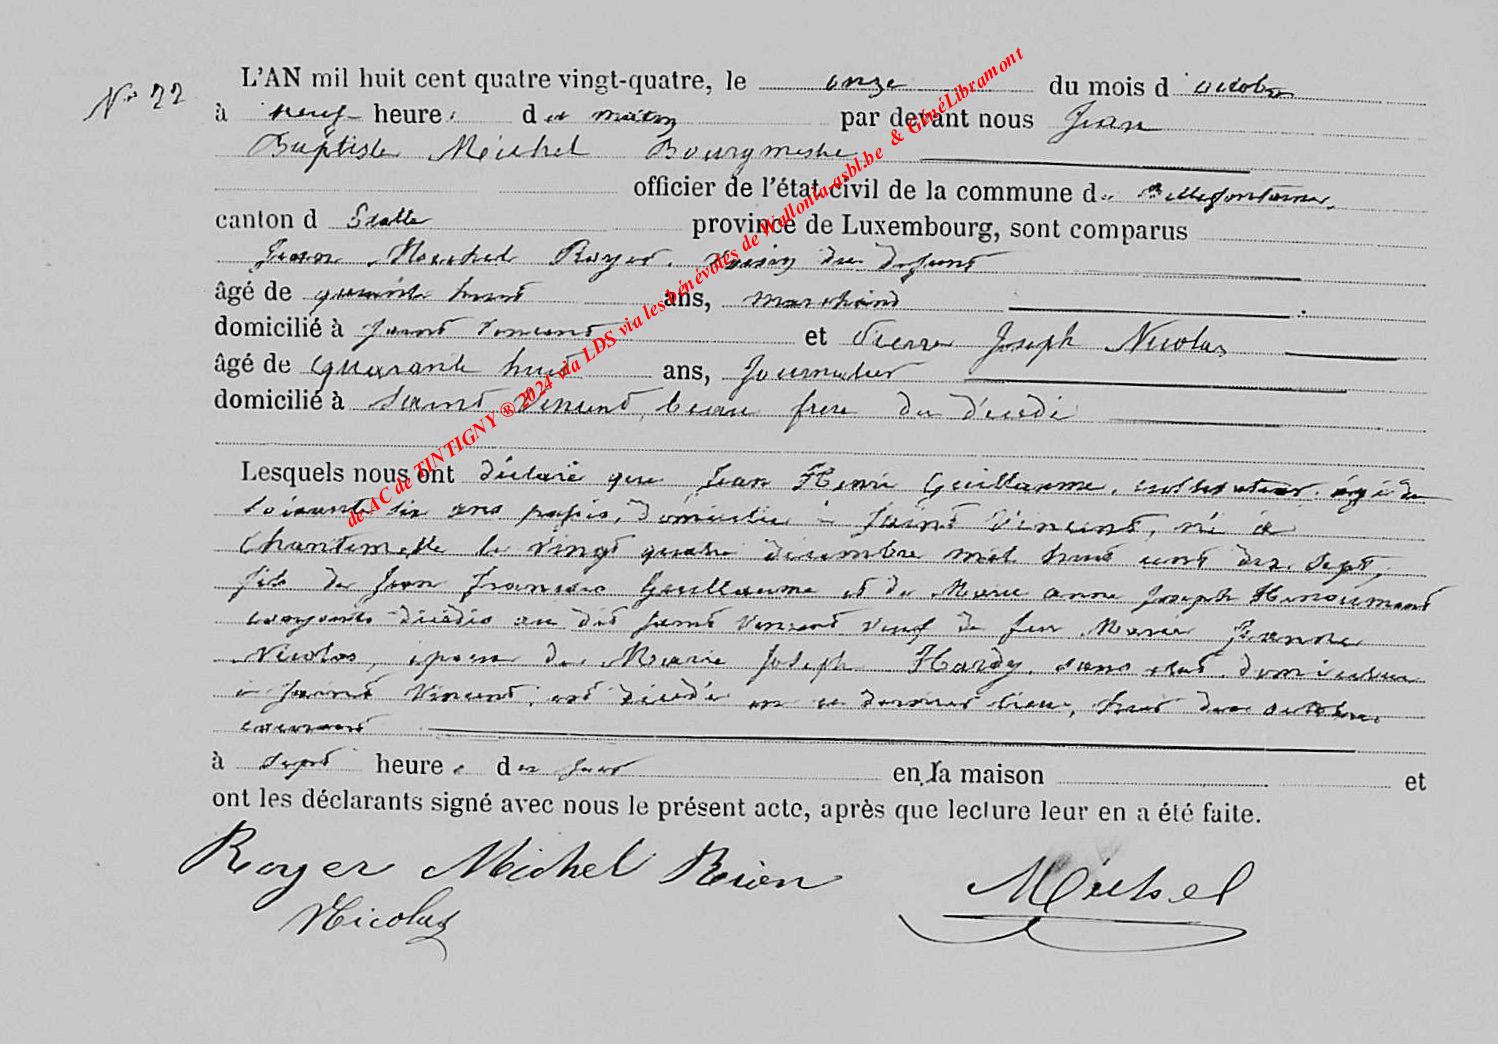 N° 22
L'AN mil huit cent quatre vingt-quatre, le onze du mois d'octobre
à neuf heures du matin par devant nous Jean
Baptiste Michel Bourgmestre
officier de l'état-civil de la commune de Bellefontaine,
canton d'Etalle province de Luxembourg, sont comparus
Jean Michel Royer, voisin du défunt
âgé de quarante huit ans, marchand
domicilié à Saint Vincent et Pierre Joseph Nicolas
âgé de quarante huit ans, Journalier
domicilié à Saint Vincent, beau frere du décédé
Lesquels nous ont déclaré que Jean Henri Guillaume, cultivateur, agé de
soixante six ans passés, domicilié à Saint Vincent, né à
Chantemelle le vingt quatre décembre mil huit cent dix sept,
fils de Jean François Guillaume et de Marie anne Joseph
conjoints décédés au dit Saint Vincent veuf de feu Marie Jeanne
Nicolas, époux de Marie Joseph Hardy, sans état, domiciliée
à Saint Vincent, est décédé en ce dernier lieu, huit octobre
courant
à sept heures du soir en la maison et
ont les déclarants signé avec nous le présent acte, après que lecture leur en a été faite.
Royer Michel
Michel
Nicolas
de AC de TINTIGNY ® 2024 via LDS via les bénévoles de Wallonia-asbl.be & GénéLibramont